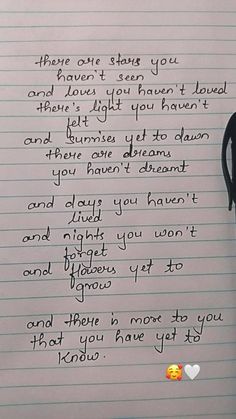 there are stars you
haven't seen
and loves you haven't loved
there's light you haven't
felt
and sunrises yet to dawn
there are dreams
you haven't dreamt
and days you haven't
lived
and nights you won't
forget
and flowers yet to
grow
and there is more to you
that you have yet to
know.